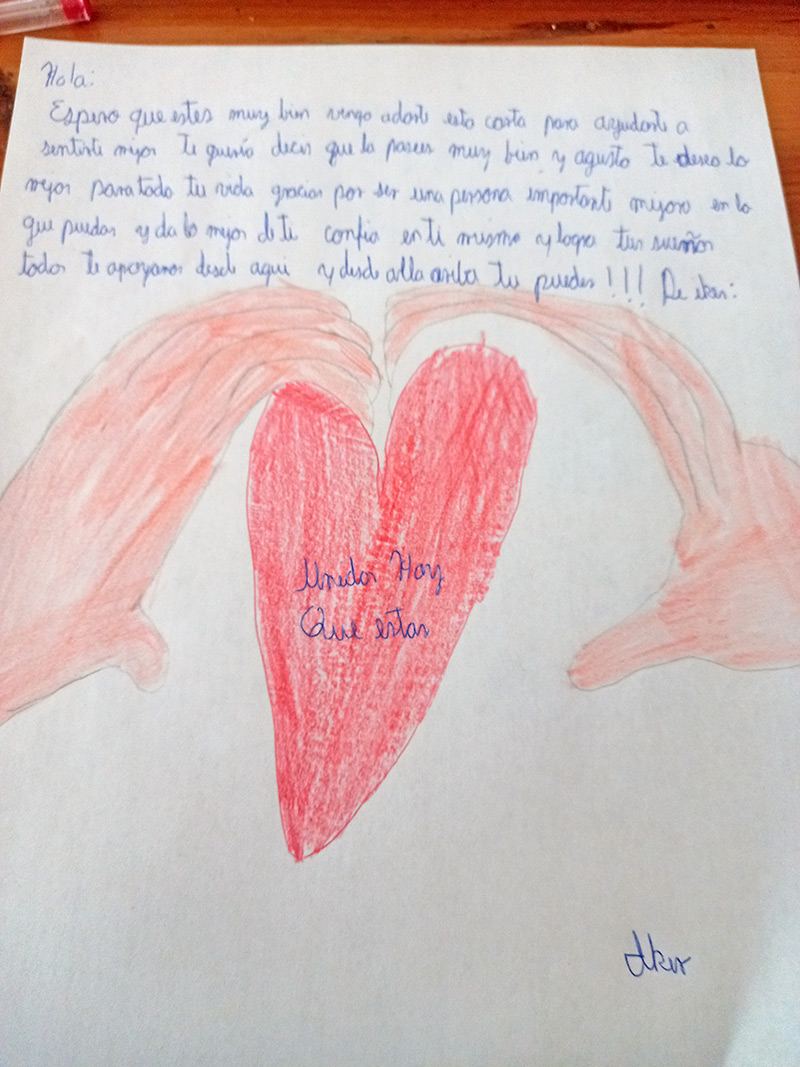 Hola:
Espero que estes muy bien vengo a darte esta carta para ayudarte a
sentirte mijor te quería decir que la pases muy bien y agusto te deseo lo
mejor para toda tu vida gracias por ser una persona importante mijora en lo
que puedas y da lo mejor de ti confia en ti mismo y logra tus sueños
todos te apoyamos desde aqui y desde alla arriba tu puedes!!! De iker:
Unidos Hay
Que estar
Iker